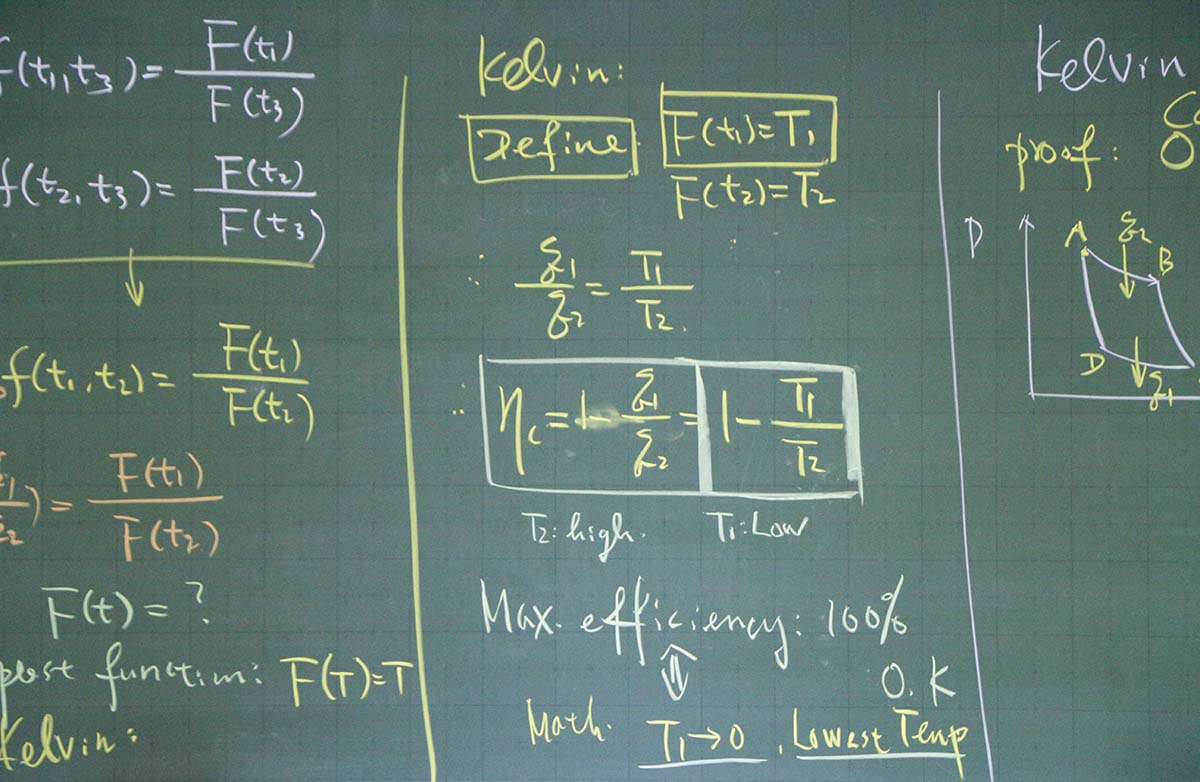 f(t₁,t₃) = F(t₁)/F(t₃)
f(t₂,t₃) = F(t₂)/F(t₃)
f(t₁,t₂) = F(t₁)/F(t₂)
) = F(t₁)/F(t₂)
F(t) = ?
F(T)=T
Kelvin:
Kelvin:
Define
F(t₁)=T₁
F(t₂)=T₂
q₁/q₂ = T₁/T₂
∴ η_c = 1 - q₁/q₂ = 1 - T₁/T₂
T₂: high. T₁: Low
Max. efficiency: 100%
⇕ O.K
Math. T₁→0, Lowest Temp
Kelvin
proof:
P
A q₂ B
D q₁